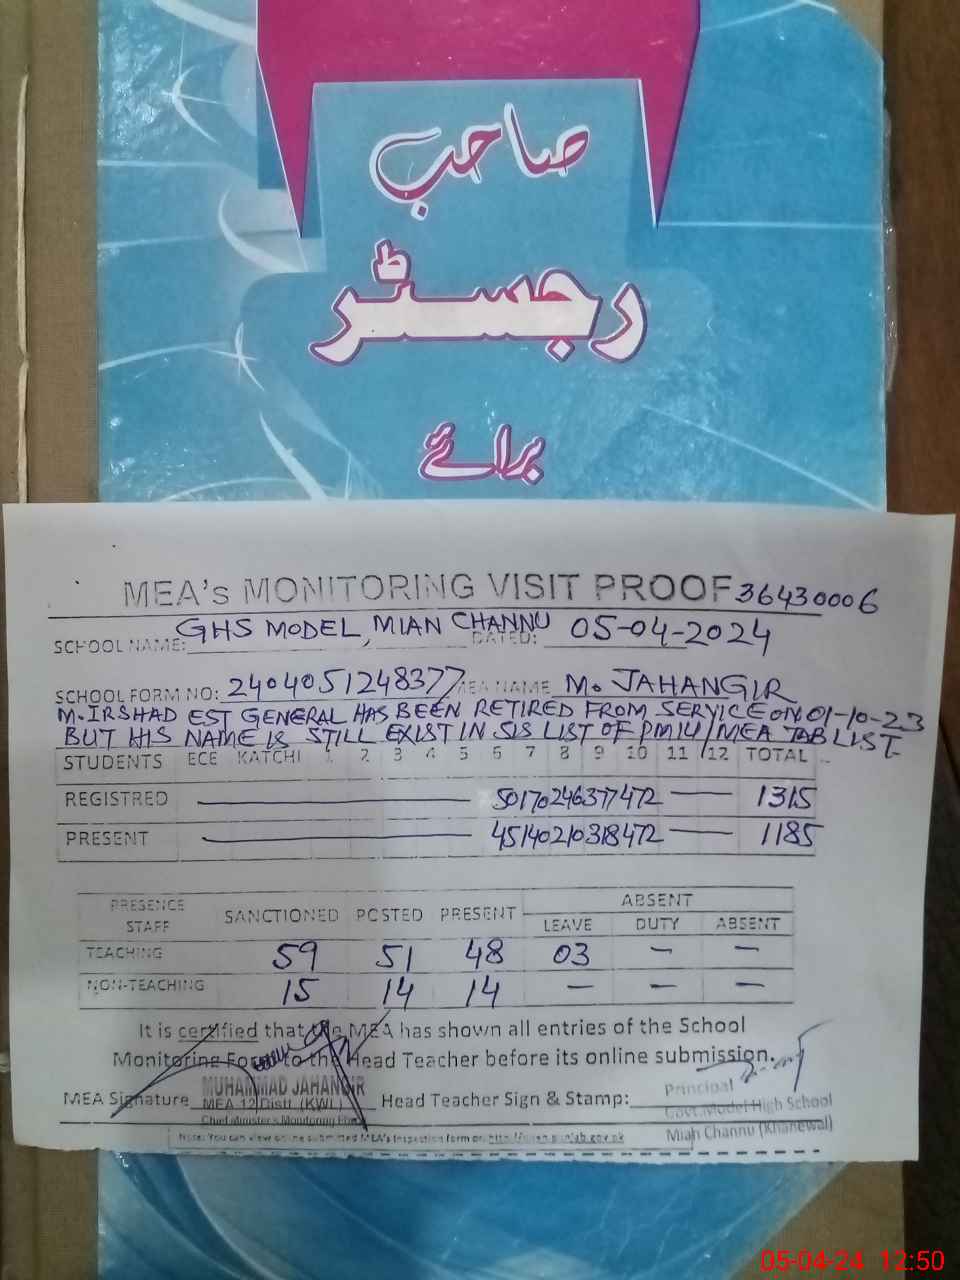 صاحب
رجسٹر
برائے
MEA's MONITORING VISIT PROOF 36430006
SCHOOL NAME: GHS MODEL, MIAN CHANNU DATED: 05-04-2024
SCHOOL FORM NO: 2404051248377 MEA NAME M. JAHANGIR
M. IRSHAD EST GENERAL HAS BEEN RETIRED FROM SERVICE ON 01-10-23
BUT HIS NAME IS STILL EXIST IN SIS LIST OF PMIU/MEA TAB LIST
STUDENTS ECE KATCHI 1 2 3 4 5 6 7 8 9 10 11 12 TOTAL
REGISTRED 50 170 246 377 472 1315
PRESENT 45 140 210 318 472 1185
PRESENCE STAFF SANCTIONED POSTED PRESENT ABSENT
LEAVE DUTY ABSENT
TEACHING 59 51 48 03 — —
NON-TEACHING 15 14 14 — — —
It is certified that the MEA has shown all entries of the School
Monitoring Form to the Head Teacher before its online submission.
MUHAMMAD JAHANGIR
MEA Signature MEA 12 Distt. (KWL) Head Teacher Sign & Stamp:
Chief Minister's Monitoring Force
Principal
Govt. Model High School
Miah Channu (Khanewal)
Note: You can view online submitted MEA's inspection form on: http://open.punjab.gov.pk
05-04-24 12:50